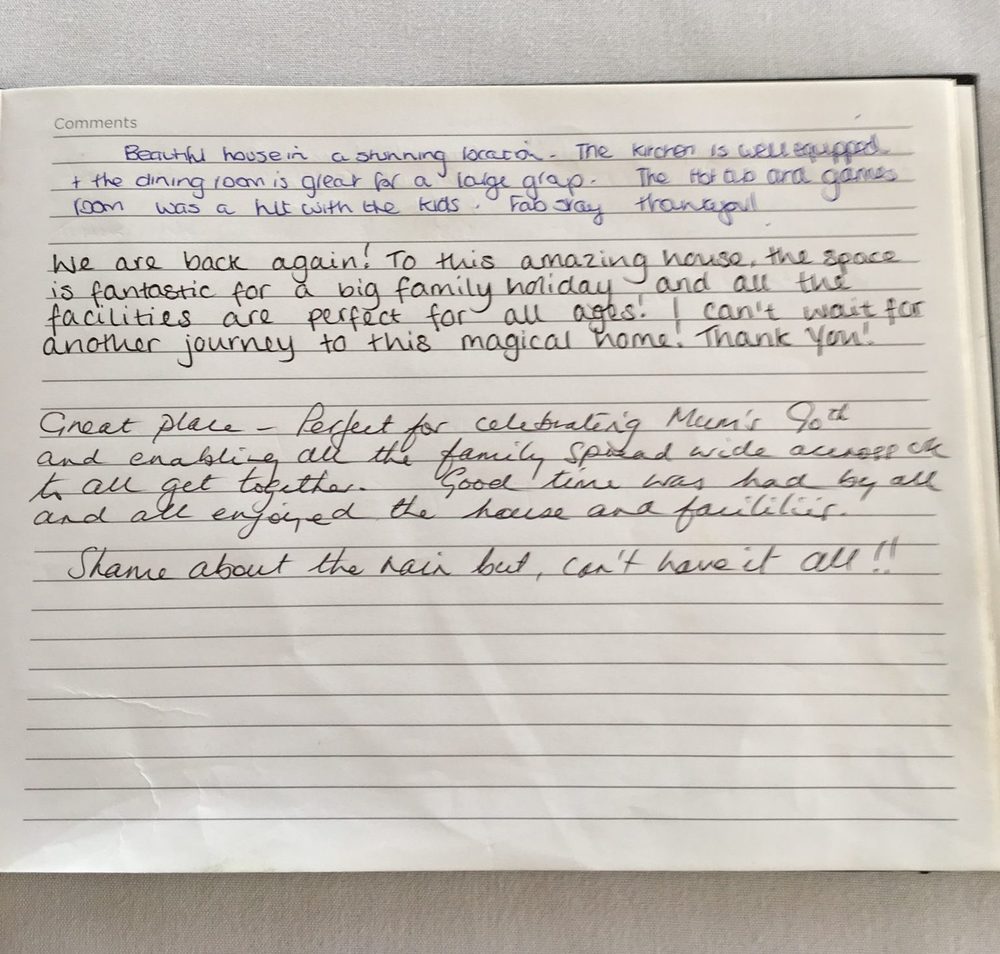 Comments
Beautiful house in a stunning location. The kitchen is well equipped
+ the dining room is great for a large group. The Hot tub and games
room was a hit with the kids. Fab stay thankyou!
We are back again! To this amazing house, the space
is fantastic for a big family holiday and all the
facilities are perfect for all ages! I can't wait for
another journey to this magical home! Thank You!
Great place - Perfect for celebrating Mum's 90th
and enabling all the family spread wide across UK
to all get together. Good time was had by all
and all enjoyed the house and facilities.
Shame about the rain but, can't have it all!!